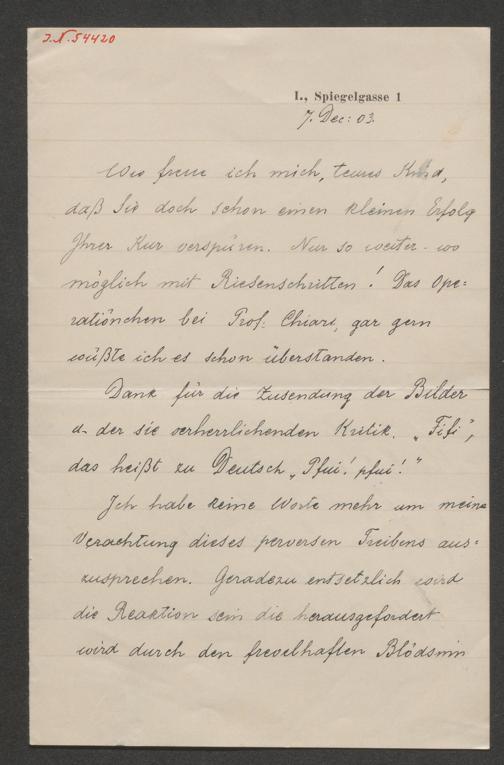 J.N. 54420
I., Spiegelgasse 1
7. Dec: 03.
Wie freue ich mich, teures Kind,
daß Sie doch schon einen kleinen Erfolg
Ihrer Kur verspüren. Nur so weiter - wo
möglich mit Riesenschritten! Das Ope=
ratiönchen bei Prof. Chiari, gar gern
wüßte ich es schon überstanden.
Dank für die Zusendung der Bilder
u. der sie verherrlichenden Kritik. „Fifi",
das heißt zu Deutsch „Pfui! pfui!"
Ich habe keine Worte mehr um meine
Verachtung dieses perversen Treibens aus=
zusprechen. Geradezu entsetzlich wird
die Reaktion sein die herausgefordert
wird durch den frevelhaften Blödsinn